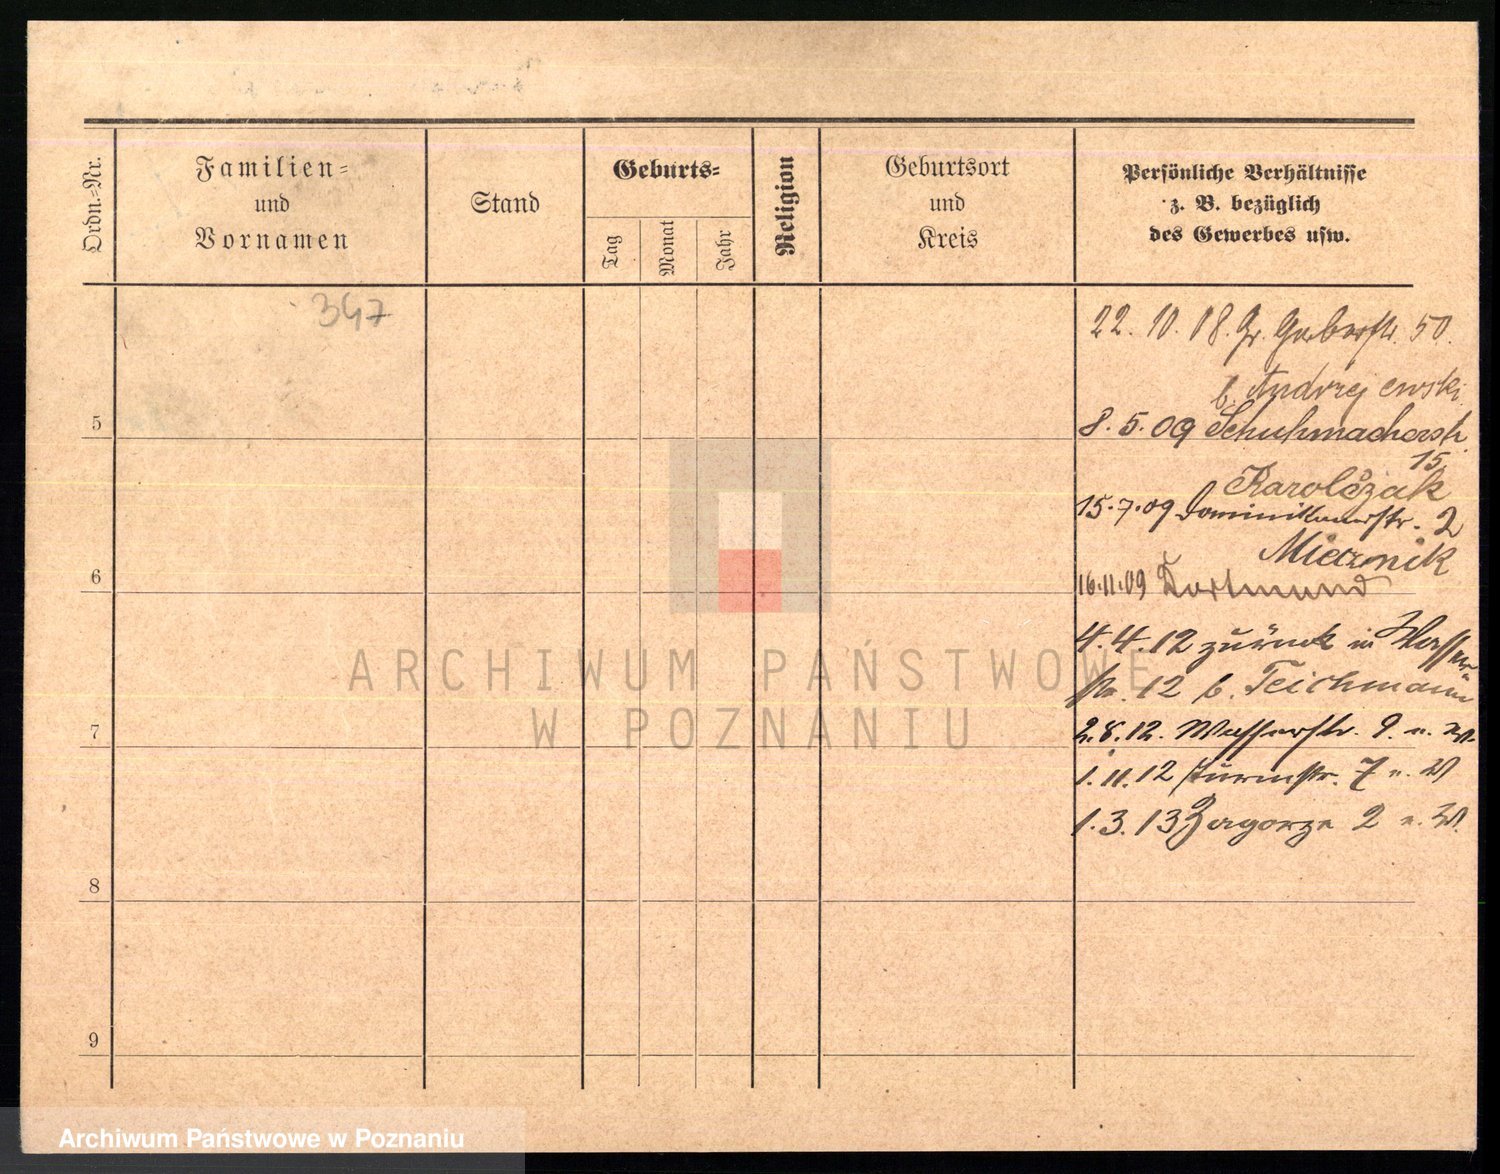 Ordn.-Nr.
Familien-
und
Vornamen
Stand
Geburts-
Tag
Monat
Jahr
Religion
Geburtsort
und
Kreis
Persönliche Verhältnisse
z. B. bezüglich
des Gewerbes usw.
347
22. 10. 08. Gr. Gerberstr. 50.
b. Andrzejewski
5
8. 5. 09 Schuhmacherstr.
15.
Karolczak
15.7.09 Dominikanerstr. 2
Miecznik
6
16.11.09 Dortmund
4.4.12 zurück in Wasser-
str. 12 b. Teichmann
7
2.8.12. Wasserstr. 9. u. W.
1.11.12 Turmstr. 7 u. W
1.3.13 Zagorze 2 u. W.
8
9
ARCHIWUM PAŃSTWOWE
W POZNANIU
Archiwum Państwowe w Poznaniu